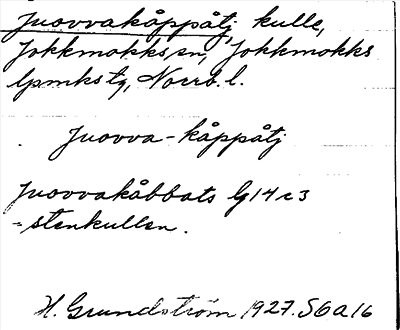 Juovvakåppåtj, kulle,
Jokkmokks sn, Jokkmokks
lpmks tg, Norrb. l.
Juovva-kåppåtj
Juovvakåbbats lg 14 c 3
-stenkullen.
H. Grundström 1927. S6a16